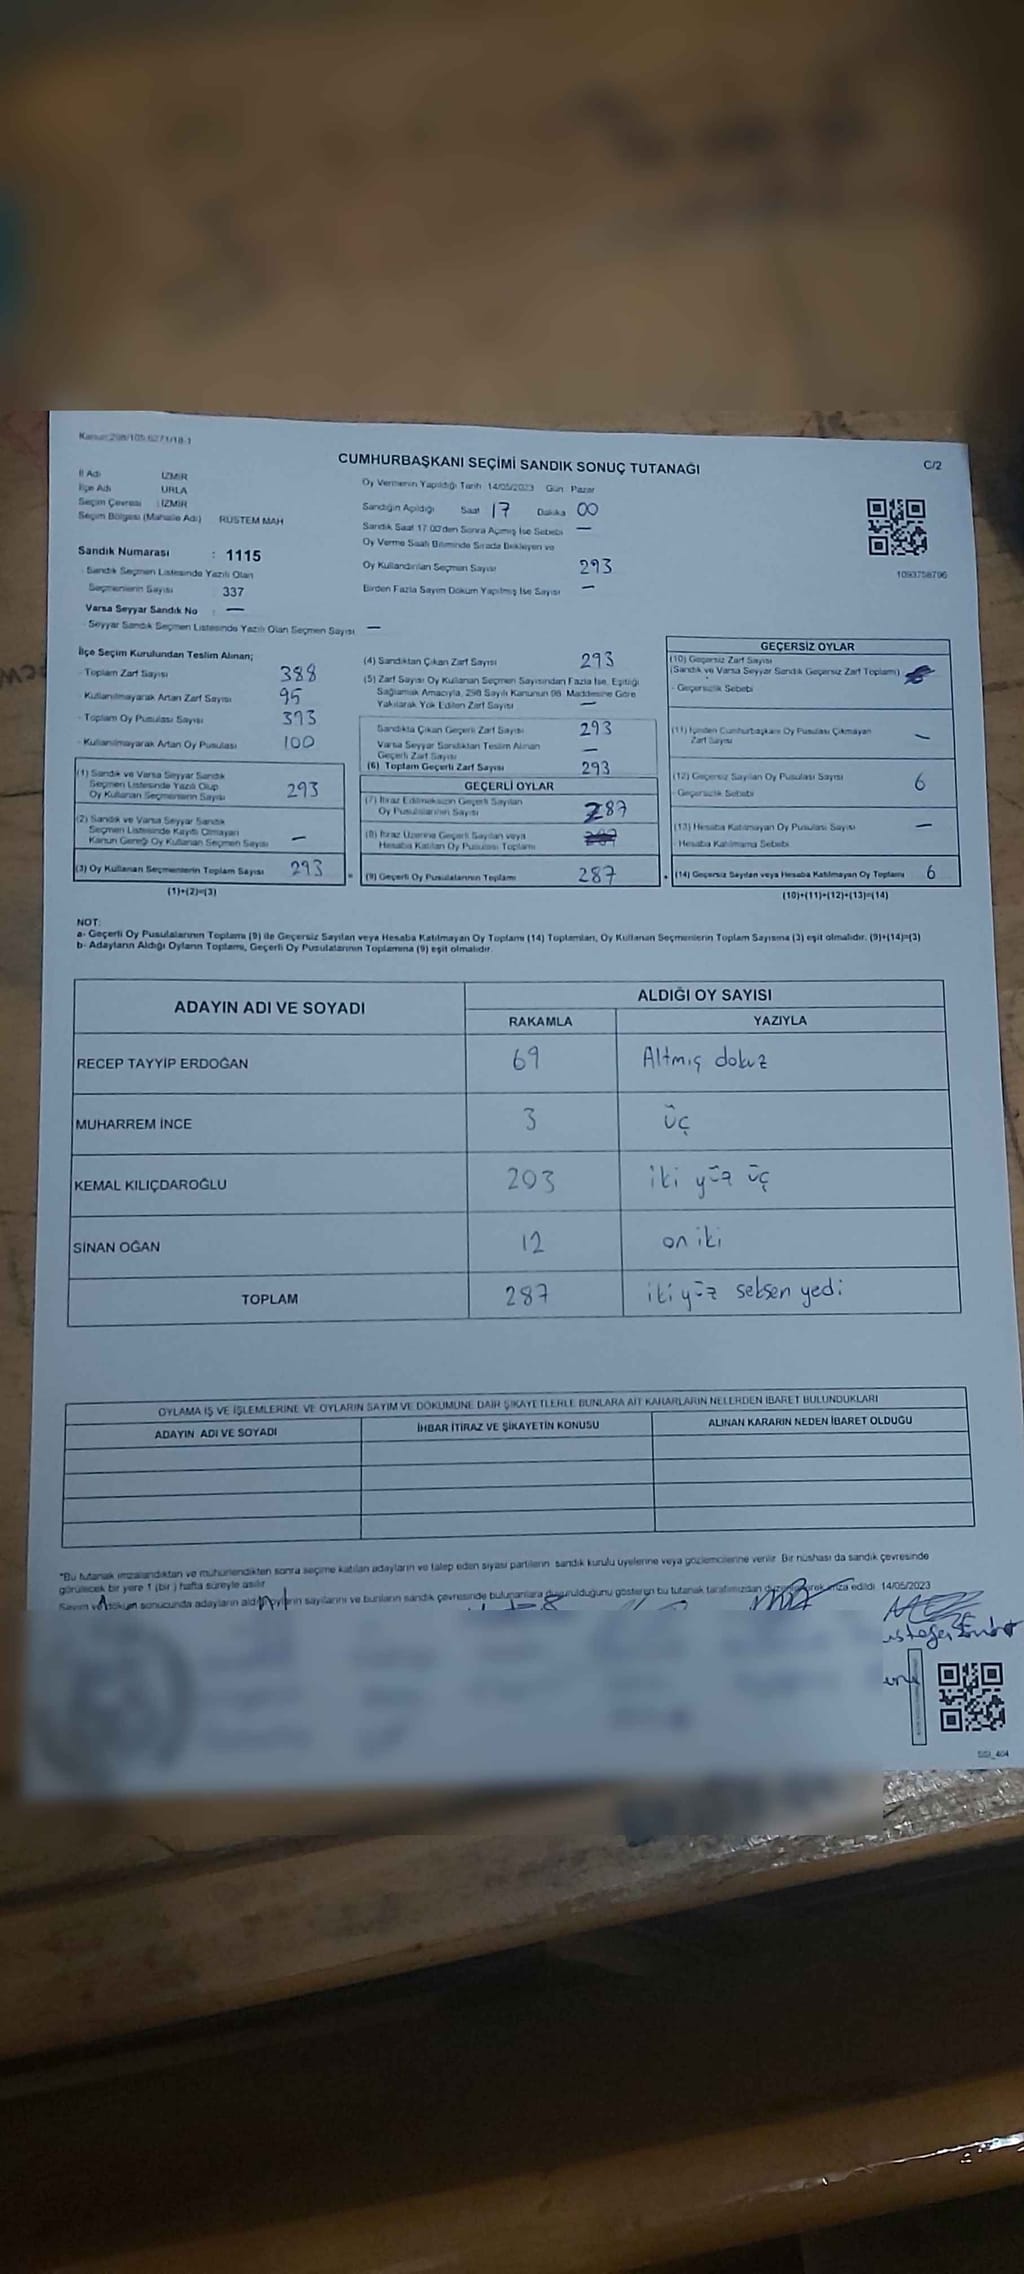 Kanun:298/105,6271/18-1
CUMHURBAŞKANI SEÇİMİ SANDIK SONUÇ TUTANAĞI
C/2
İl Adı İZMİR
İlçe Adı URLA
Seçim Çevresi : İZMİR
Seçim Bölgesi (Mahalle Adı) RÜSTEM MAH
Oy Vermenin Yapıldığı Tarih 14/05/2023 Gün Pazar
Sandığın Açıldığı Saat 17 Dakika 00
Sandık Saat 17:00'den Sonra Açılmış İse Sebebi —
Oy Verme Saati Bitiminde Sırada Bekleyen ve
Oy Kullandırılan Seçmen Sayısı 293
Birden Fazla Sayım Döküm Yapılmış İse Sayısı —
1093758796
Sandık Numarası : 1115
Sandık Seçmen Listesinde Yazılı Olan
Seçmenlerin Sayısı 337
Varsa Seyyar Sandık No : —
Seyyar Sandık Seçmen Listesinde Yazılı Olan Seçmen Sayısı —
İlçe Seçim Kurulundan Teslim Alınan;
- Toplam Zarf Sayısı 388
- Kullanılmayarak Artan Zarf Sayısı 95
- Toplam Oy Pusulası Sayısı 393
- Kullanılmayarak Artan Oy Pusulası 100
(1) Sandık ve Varsa Seyyar Sandık
Seçmen Listesinde Yazılı Olup
Oy Kullanan Seçmenlerin Sayısı 293
(2) Sandık ve Varsa Seyyar Sandık
Seçmen Listesinde Kayıtlı Olmayan
Kanun Gereği Oy Kullanan Seçmen Sayısı —
(3) Oy Kullanan Seçmenlerin Toplam Sayısı 293
(1)+(2)=(3)
(4) Sandıktan Çıkan Zarf Sayısı 293
(5) Zarf Sayısı Oy Kullanan Seçmen Sayısından Fazla İse, Eşitliği
Sağlamak Amacıyla, 298 Sayılı Kanunun 98. Maddesine Göre
Yakılarak Yok Edilen Zarf Sayısı —
Sandıkta Çıkan Geçerli Zarf Sayısı 293
Varsa Seyyar Sandıktan Teslim Alınan
Geçerli Zarf Sayısı —
(6) Toplam Geçerli Zarf Sayısı 293
GEÇERLİ OYLAR
(7) İtiraz Edilmeksizin Geçerli Sayılan
Oy Pusulalarının Sayısı 287
(8) İtiraz Üzerine Geçerli Sayılan veya
Hesaba Katılan Oy Pusulası Toplamı
= (9) Geçerli Oy Pusulalarının Toplamı 287
GEÇERSİZ OYLAR
(10) Geçersiz Zarf Sayısı
(Sandık ve Varsa Seyyar Sandık Geçersiz Zarf Toplamı)
- Geçersizlik Sebebi
(11) İçinden Cumhurbaşkanı Oy Pusulası Çıkmayan
Zarf Sayısı —
(12) Geçersiz Sayılan Oy Pusulası Sayısı 6
- Geçersizlik Sebebi
(13) Hesaba Katılmayan Oy Pusulası Sayısı —
- Hesaba Katılmama Sebebi
+ (14) Geçersiz Sayılan veya Hesaba Katılmayan Oy Toplamı 6
(10)+(11)+(12)+(13)=(14)
NOT:
a- Geçerli Oy Pusulalarının Toplamı (9) ile Geçersiz Sayılan veya Hesaba Katılmayan Oy Toplamı (14) Toplamları, Oy Kullanan Seçmenlerin Toplam Sayısına (3) eşit olmalıdır. (9)+(14)=(3)
b- Adayların Aldığı Oyların Toplamı, Geçerli Oy Pusulalarının Toplamına (9) eşit olmalıdır.
ADAYIN ADI VE SOYADI ALDIĞI OY SAYISI
RAKAMLA YAZIYLA
RECEP TAYYİP ERDOĞAN 69 Altmış dokuz
MUHARREM İNCE 3 üç
KEMAL KILIÇDAROĞLU 203 iki yüz üç
SİNAN OĞAN 12 on iki
TOPLAM 287 iki yüz seksen yedi
OYLAMA İŞ VE İŞLEMLERİNE VE OYLARIN SAYIM VE DÖKÜMÜNE DAİR ŞİKAYETLERLE BUNLARA AİT KARARLARIN NELERDEN İBARET BULUNDUKLARI
ADAYIN ADI VE SOYADI İHBAR İTİRAZ VE ŞİKAYETİN KONUSU ALINAN KARARIN NEDEN İBARET OLDUĞU
*Bu tutanak imzalandıktan ve mühürlendikten sonra seçime katılan adayların ve talep eden siyasi partilerin sandık kurulu üyelerine veya gözlemcilerine verilir. Bir nüshası da sandık çevresinde
görülecek bir yere 1 (bir) hafta süreyle asılır.
Sayım ve döküm sonucunda adayların aldığı oyların sayılarını ve bunların sandık çevresinde bulunanlara duyurulduğunu gösteren bu tutanak tarafımızdan düzenlenerek imza edildi. 14/05/2023
SSİ_404